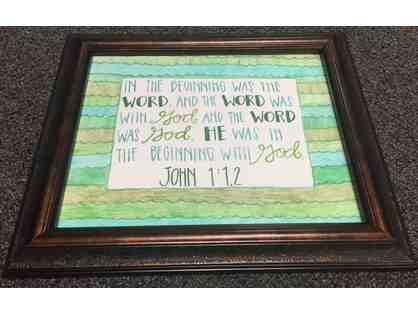 IN THE BEGINNING WAS THE
WORD, AND THE WORD WAS
WITH God AND THE WORD
WAS God. HE WAS IN
THE BEGINNING WITH God.
JOHN 1:1,2